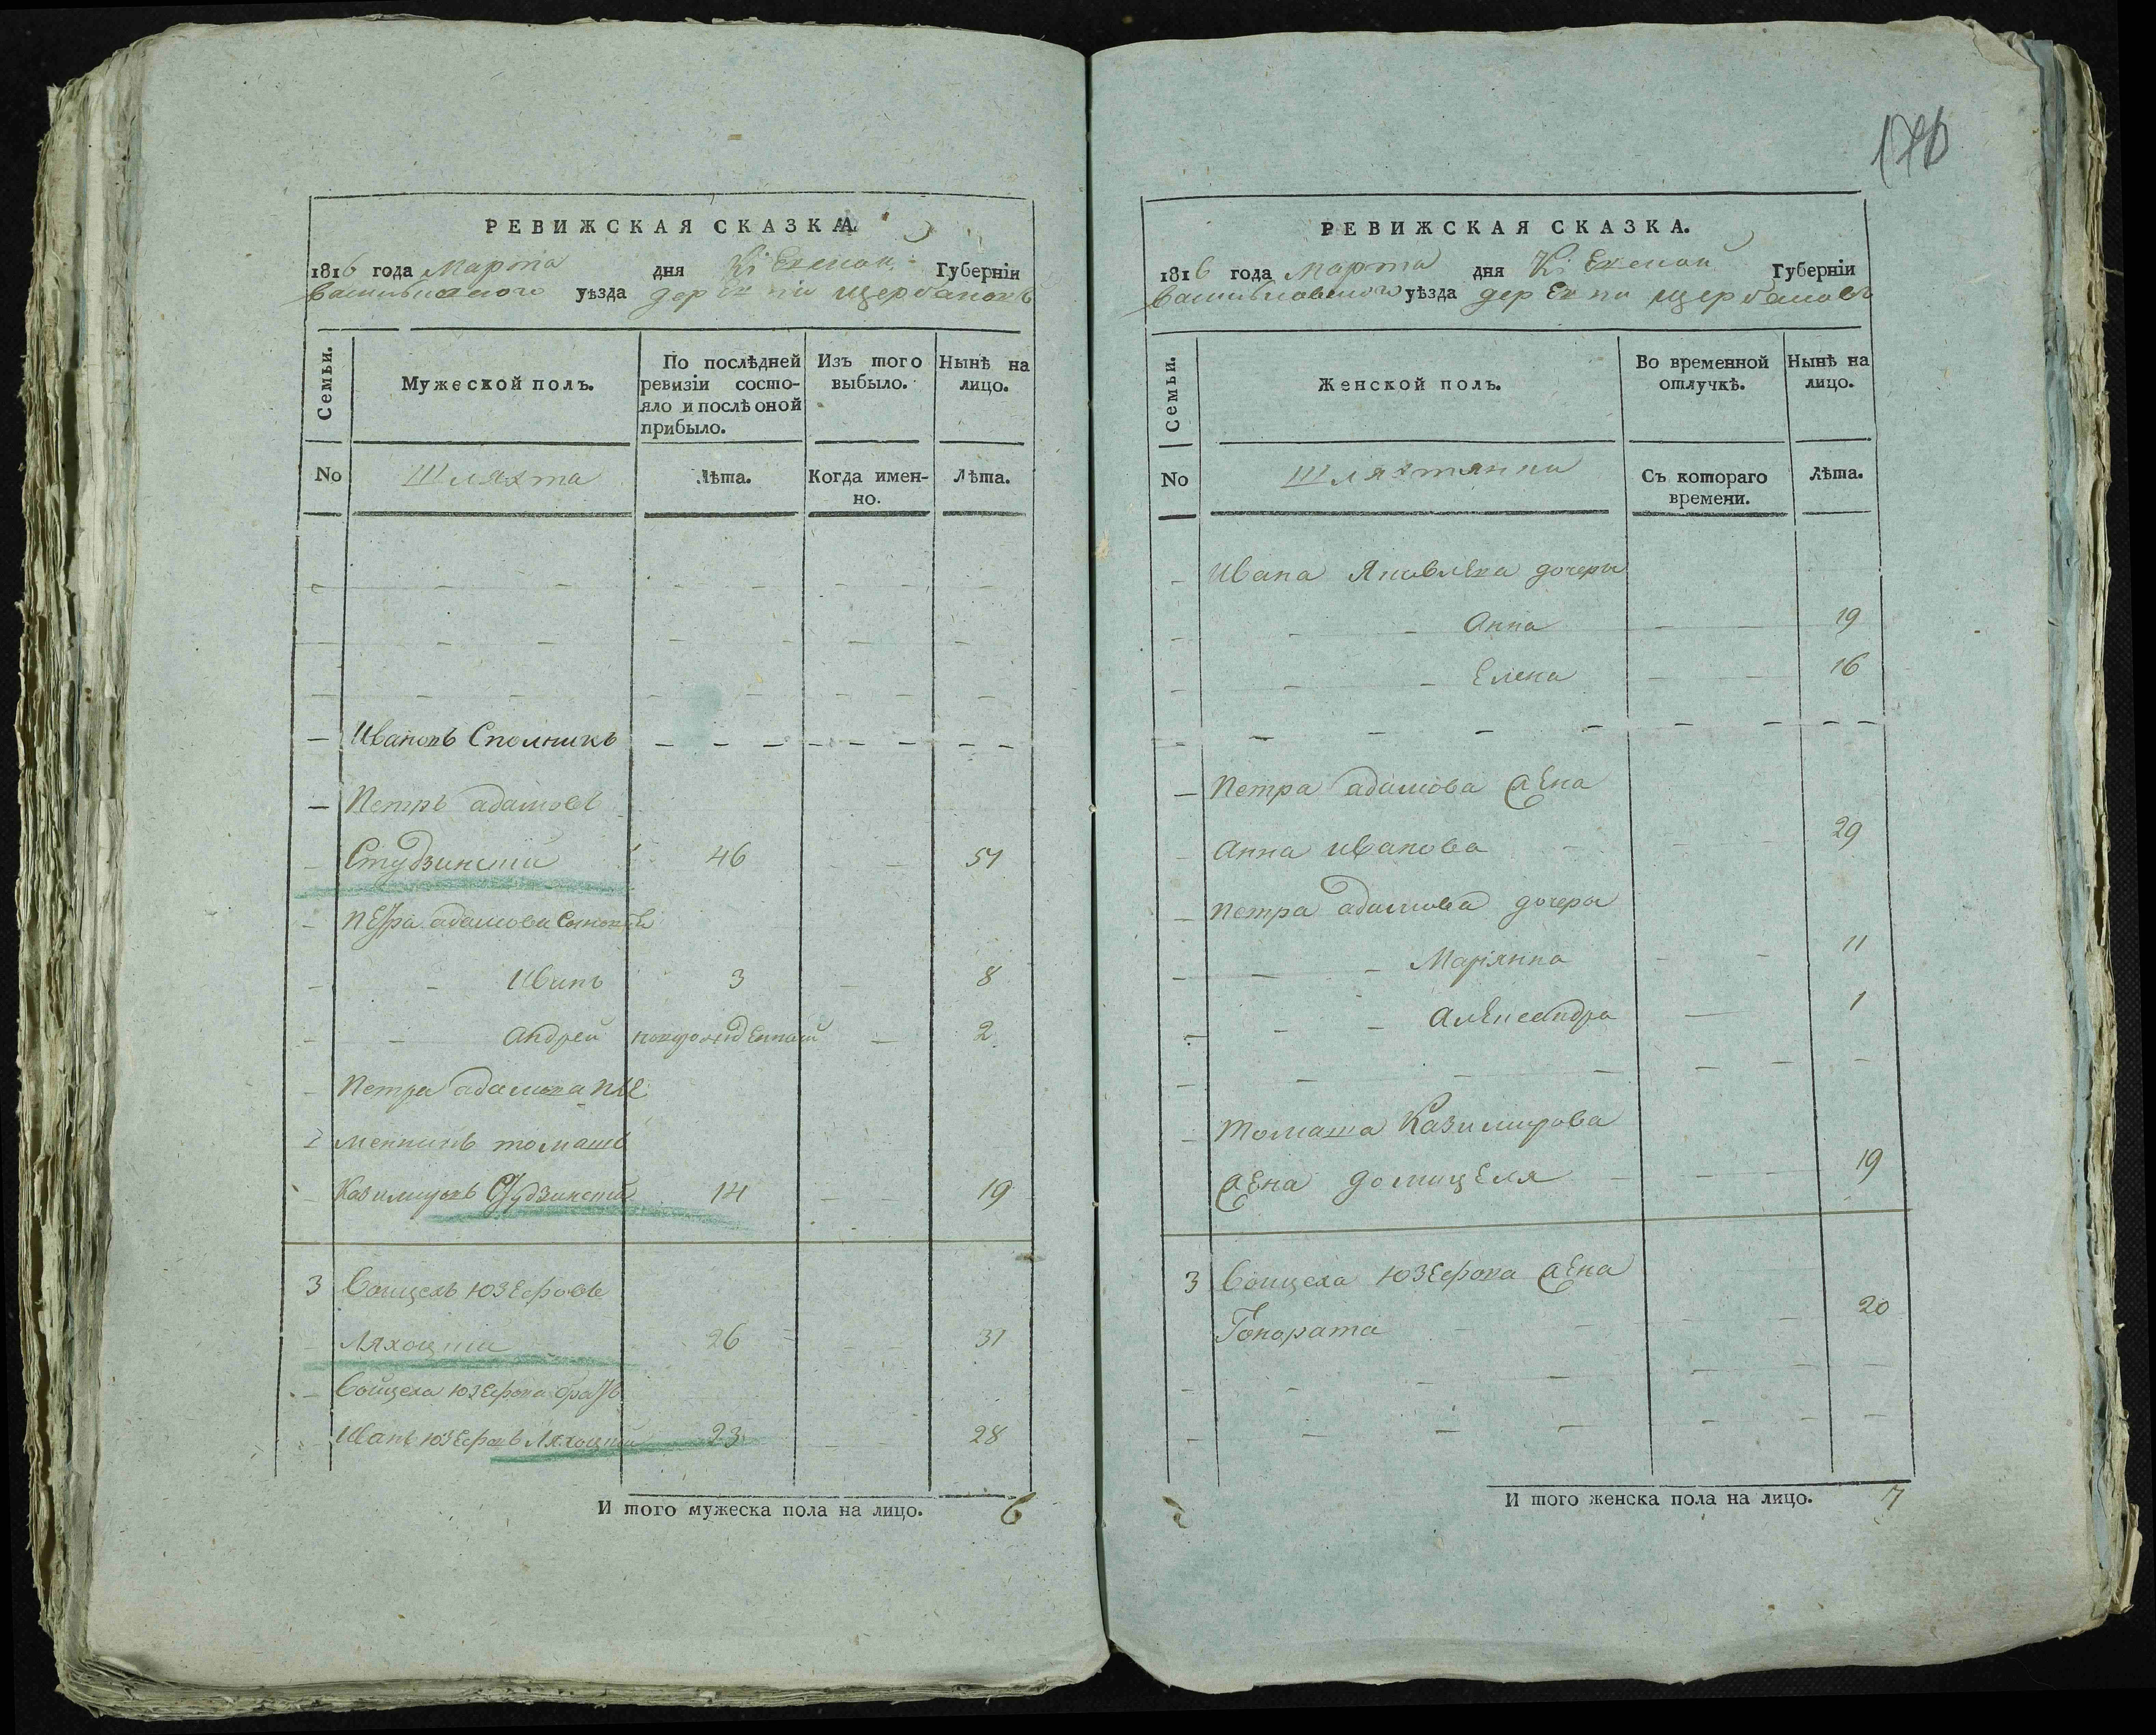 РЕВИЖСКАЯ СКАЗКА
1816 года марта дня Кіевской Губерніи
Васильковского уѣзда деревни щербаковъ
Семьи.
Мужеской полъ.
По послѣдней ревизіи состо-
яло и послѣ оной
прибыло.
Изъ того
выбыло.
Нынѣ на
лицо.
No
Шляхта
Лѣта.
Когда имен-
но.
Лѣта.
Ивановъ Сполникъ
Петръ адамовъ
Студзинский 46 51
Петра адамова сыновья
Иванъ 3 8
Андрей новорожденный 2
Петра адамова пле
2 менникъ томашъ
Казимировъ Студзинский 14 19
3 Войцехъ юзефовъ
Ляхоцкий 26 31
Войцеха юзефова братъ
Иванъ юзефовъ Ляхоцкий 23 28
И того мужеска пола на лицо. 6
РЕВИЖСКАЯ СКАЗКА.
1816 года марта дня Кіевской Губерніи
Васильковского уѣзда деревни щербаковъ
Семьи.
Женской полъ.
Во временной
отлучкѣ.
Нынѣ на
лицо.
No
Шляхтянки
Съ котораго
времени.
Лѣта.
Ивана Яковлева дочери
Анна 19
Елена 16
Петра адамова жена
Анна иванова 29
Петра адамова дочери
Маріянна 11
Александра 1
Томаша Казимирова
жена домицеля 19
3 Войцеха юзефова жена
Гонората 20
И того женска пола на лицо. 7